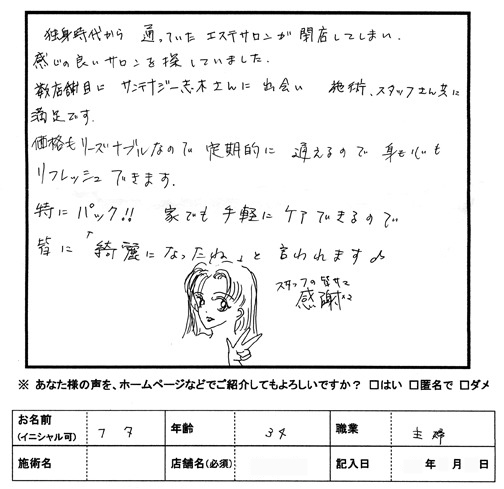 独身時代から 通っていた エステサロンが 閉店してしまい、
感じの良いサロンを探していました。
数店舗目に サンテナジー志木さんに 出会い 施術、スタッフさん共に
満足です。
価格もリーズナブルなので 定期的に 通えるので 身も心も
リフレッシュできます。
特にパック!! 家でも手軽にケアできるので
皆に「綺麗になったね」と言われます♪
スタッフの皆サマ
感謝×2
※ あなた様の声を、ホームページなどでご紹介してもよろしいですか? □はい □匿名で □ダメ
お名前
(イニシャル可) 年齢 34 職業 主婦
施術名 店舗名(必須) 記入日 年 月 日